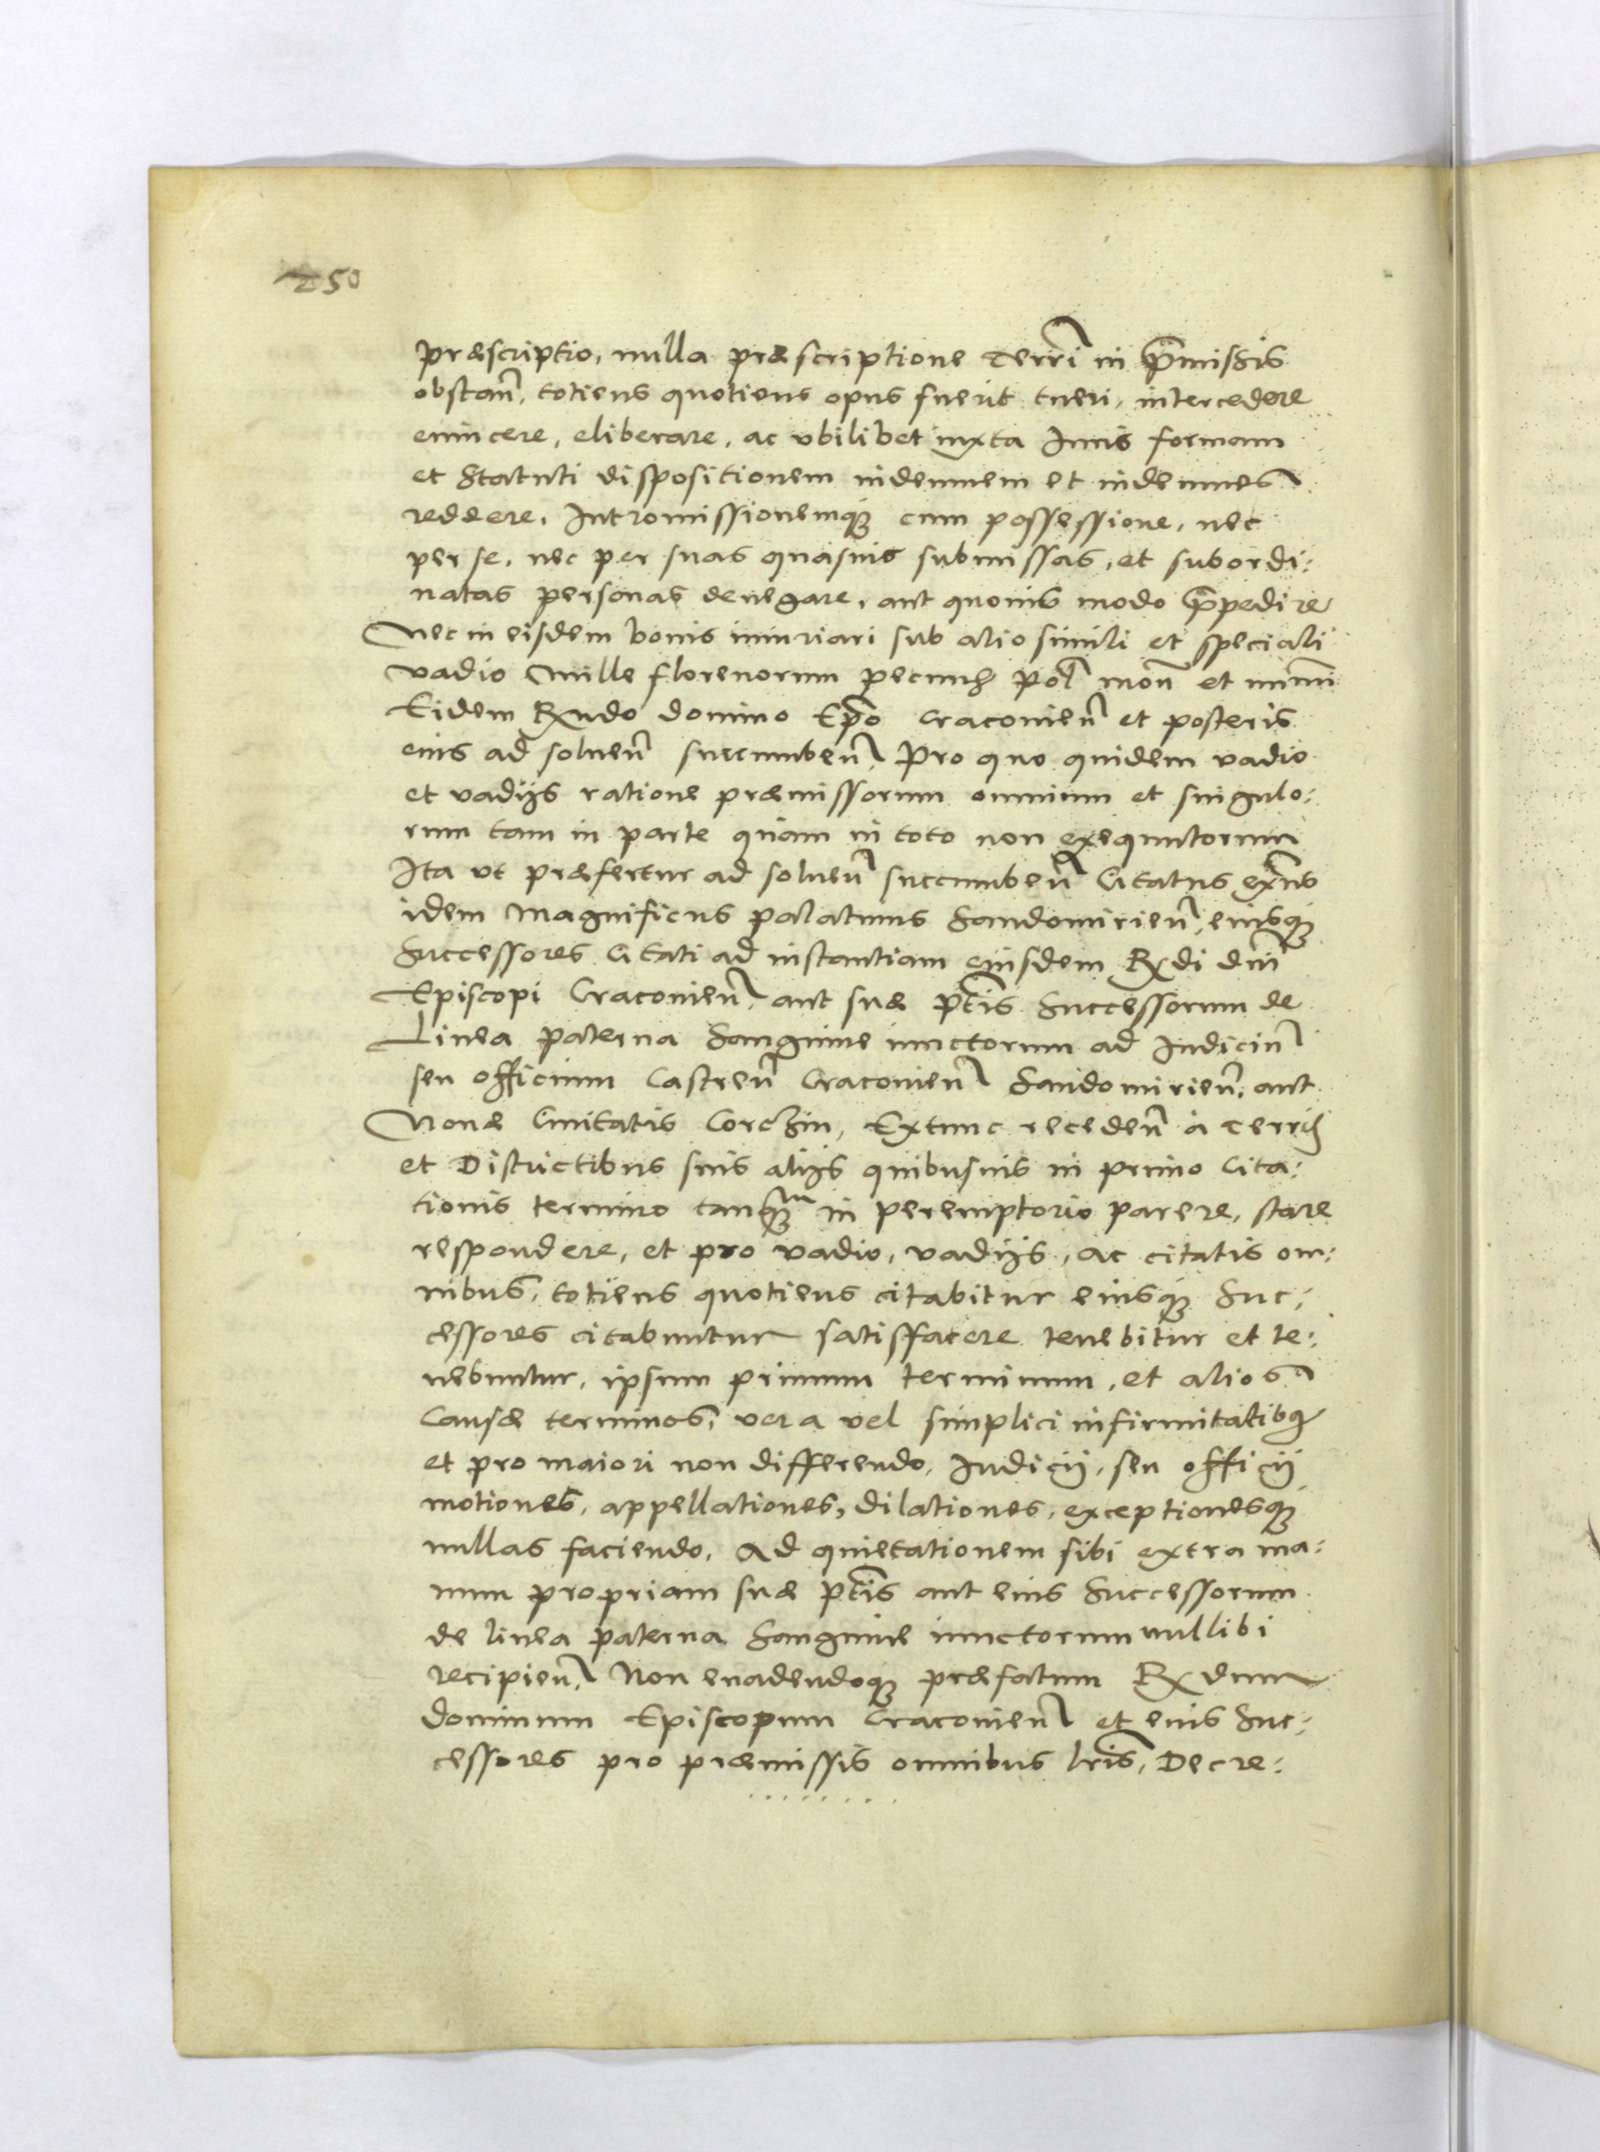 250
præscriptio, nulla præscriptione terrĩ in p̃missis
obstan̄, totiens quotiens opus fuerit tueri, intercedere
evincere, eliberare, ac ubilibet iuxta Iuris formam
et Statuti dispositionem indemnem et indemnes
reddere. Intromissionemq̃ cum possessione, nec
per se, nec per suas quasvis submissas, et subordi:
natas personas denegare, aut quovis modo p̃pedire
Nec in eisdem bonis iniuriari sub alio simili et speciali
vadio Mille florenorum pecuniæ Pol̄ mon̄ et
Eidem Rx̄ndo domino Ep̄o Cracovien̄ et posteris
eius ad solven̄ succumben̄. Pro quo quidem vadio
et vadijs ratione præmissorum omnium et singulo:
rum tam in parte quam in toto non exequutorum
Ita ut præfertur ad solven̄ succumben̄ Citatus ex̄ns
idem Magnificus palatinus Sandomirien̄, eiusq̃
Successores Citati ad instantiam eiusdem Rx̄di dn̄i
Episcopi Cracovien̄, aut suæ p̄tis Successorum de
Linea paterna Sanguine iunctorum ad Iudiciū
seu officium Castren̄ Cracovien̄ Sandomirien̄, aut
Novæ Civitatis Corczin, Extunc receden̄ à terris
et Districtibus suis alijs quibusvis in primo Cita:
tionis termino tanq̃m in peremptorio parere, stare
respondere, et pro vadio, vadijs, ac citatis om:
nibus, totiens quotiens citabitur eiusq̃ Suc:
cessores citabuntur satisfacere tenebitur et te:
nebuntur, ipsum primum terminum, et alios
Causæ terminos, vera vel simplici infirmitatibq̃
et pro maiori non differendo, Iudicij, seu officij
motiones, appellationes, dilationes, exceptionesq̃
nullas faciendo. Ad quietationem sibi extra ma:
num propriam suæ p̄tis aut eius Successorum
de linea paterna Sanguine iunctorum nullibi
recipien̄, Non evadendoq̃ præfatum Rx̄dum
dominum Episcopum Cracovien̄ et eius Suc:
cessores pro præmissis omnibus lr̄is, Decre: